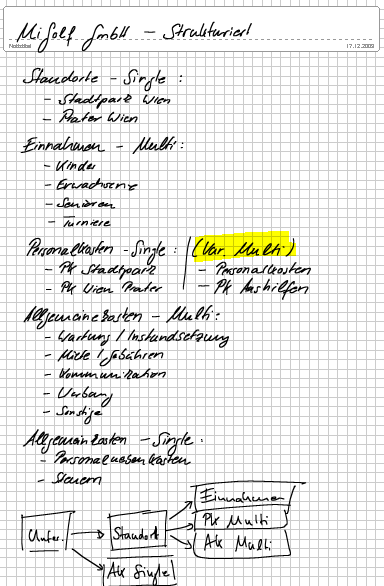 MiGolf GmbH – Strukturiert
Notiztitel
17.12.2009
Standorte – Single :
– Stadtpark Wien
– Prater Wien
Einnahmen – Multi :
– Kinder
– Erwachsene
– Senioren
– Turniere
Personalkosten – Single : | (Var. Multi)
– PK Stadtpark | – Personalkosten
– PK Wien Prater | – PK Aushilfen
Allgemeinkosten – Multi :
– Wartung / Instandsetzung
– Miete / Gebühren
– Kommunikation
– Werbung
– Sonstige
Allgemeinkosten – Single :
– Personalnebenkosten
– Steuern
Einnahmen
Unter. Standort PK Multi
AK Multi
AK Single